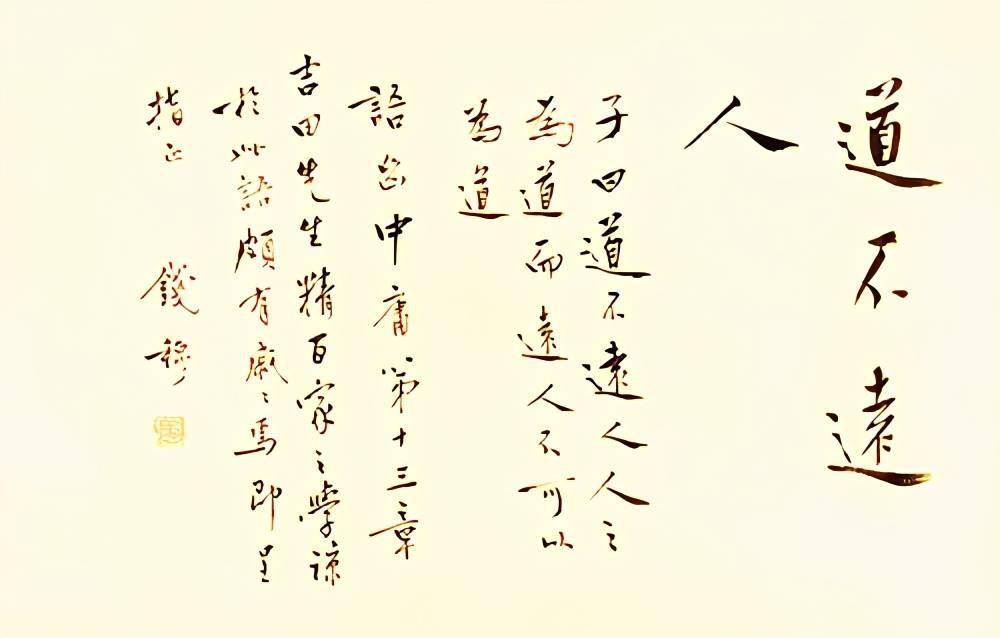 道不遠
人
子曰道不遠人人之
為道而遠人不可以
為道
語出中庸第十三章
吉田先生精百家之學諒
於此語頗有戚〻焉即呈
指正 錢穆